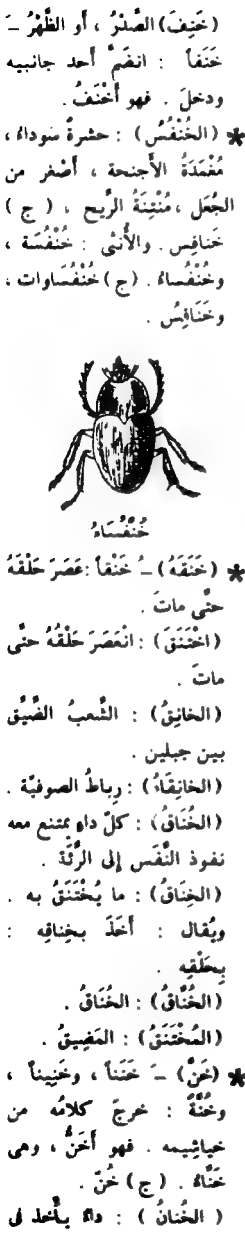 (خَنِفَ) الصَّدْرُ ، أو الظَّهْرُ ـَ
خَنَفاً : انضمَّ أحد جانبيه
ودخلَ . فهو أَخْنَفُ .
* (الخُنْفُسُ) : حشرةٌ سوداءُ ،
مُغْمَدَةُ الأَجنحة ، أَصْغر من
الجُعَل ، مُنْتِنَةُ الرَّيح . ( ج )
خَنافِس . والأُنثى : خُنْفُسَة ،
وخُنْفُساءُ . (ج) خُنْفُساوات ،
وخَنَافِسُ .
خُنْفُسَاءُ
* (خَنَقَهُ) ـُ خَنْقاً : عَصَرَ حَلْقَهُ
حتَّى ماتَ .
(اخْتَنَقَ) : انْعَصَرَ حَلْقُهُ حتَّى
ماتَ .
(الخانِقُ) : الشَّعبُ الضَّيِّق
بين جبلين .
(الخانِقَاءُ) : رِباطُ الصوفيّة .
(الخُنَاقُ) : كلّ داءٍ يمتنع معه
نفوذ النَّفَس إلى الرَّئَة .
(الخِنَاقُ) : ما يُخْتَنَقُ به .
ويُقال : أَخَذَ بخِناقِه :
بِحَلْقِه .
(الخُنَّاقُ) : الخُنَاقُ .
(المُخْتَنَقُ) : المَضِيقُ .
* (خَنَّ) ـَ خَنَناً ، وخَنِيناً ،
وخُنَّةً : خرجَ كلامُه من
خياشِيمه . فهو أَخَنُّ ، وهى
خَنَّاءُ . (ج) خُنّ .
( الخُنانُ ) : داءٌ يأْخذ فى